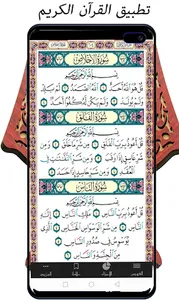 تطبيق القرآن الكريم
سُورَةُ الإِخْلَاصِ
بِسْمِ اللَّهِ الرَّحْمَٰنِ الرَّحِيمِ
قُلْ هُوَ اللَّهُ أَحَدٌ ۝ اللَّهُ الصَّمَدُ ۝ لَمْ
يَلِدْ وَلَمْ يُولَدْ ۝ وَلَمْ يَكُن لَّهُ كُفُوًا أَحَدٌ ۝
سُورَةُ الفَلَقِ
بِسْمِ اللَّهِ الرَّحْمَٰنِ الرَّحِيمِ
قُلْ أَعُوذُ بِرَبِّ الْفَلَقِ ۝ مِن شَرِّ مَا خَلَقَ ۝ وَمِن
شَرِّ غَاسِقٍ إِذَا وَقَبَ ۝ وَمِن شَرِّ النَّفَّاثَاتِ
فِي الْعُقَدِ ۝ وَمِن شَرِّ حَاسِدٍ إِذَا حَسَدَ ۝
سُورَةُ النَّاسِ
بِسْمِ اللَّهِ الرَّحْمَٰنِ الرَّحِيمِ
قُلْ أَعُوذُ بِرَبِّ النَّاسِ ۝ مَلِكِ النَّاسِ ۝
إِلَٰهِ النَّاسِ ۝ مِن شَرِّ الْوَسْوَاسِ الْخَنَّاسِ ۝ الَّذِي
يُوَسْوِسُ فِي صُدُورِ النَّاسِ ۝
مِنَ الْجِنَّةِ وَالنَّاسِ ۝